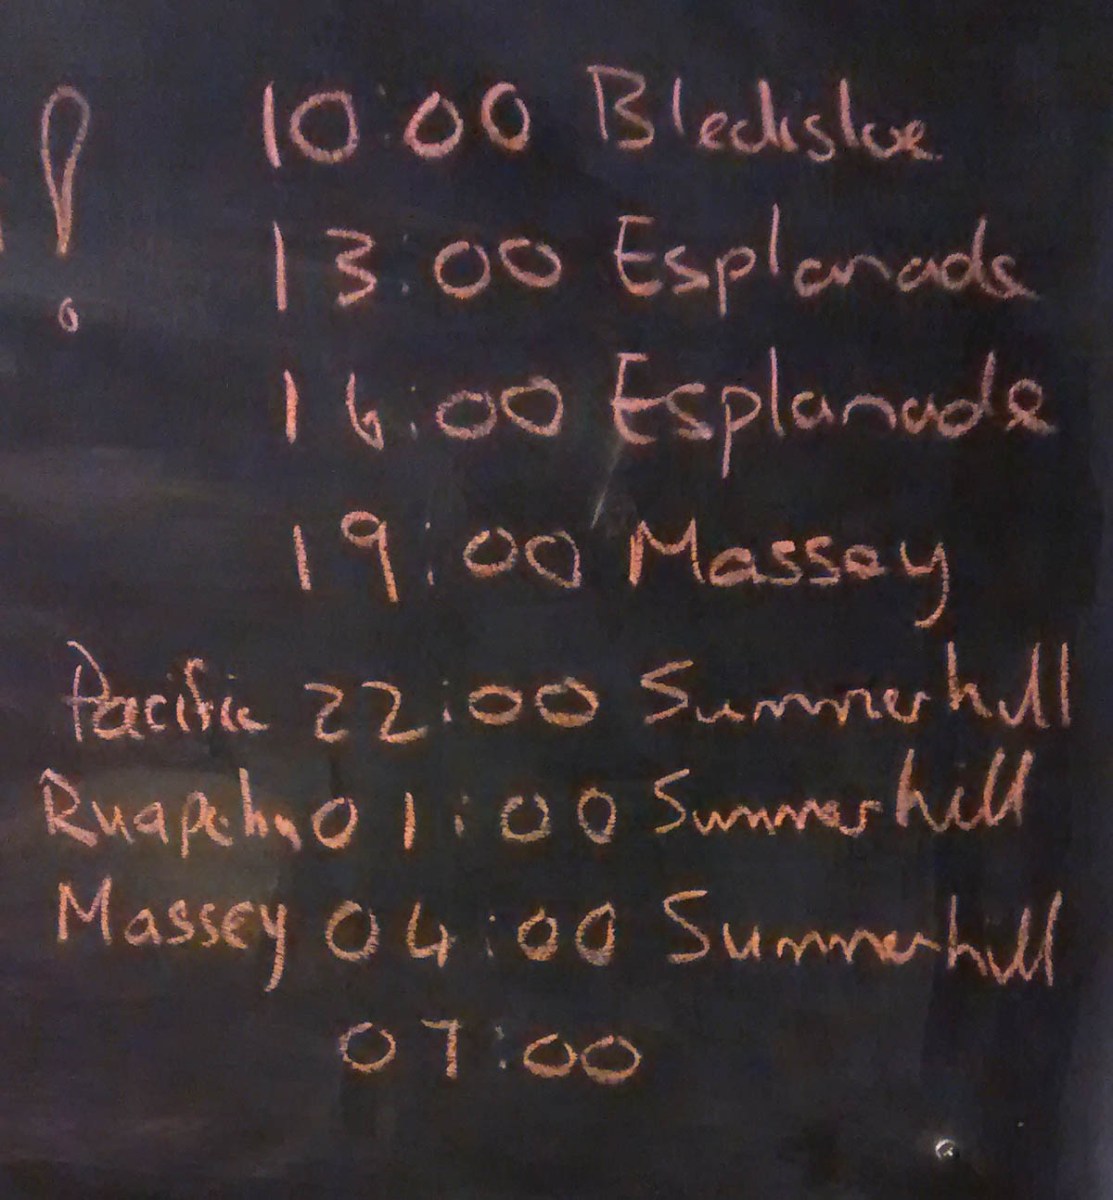 ! 10:00 Bledisloe
13:00 Esplanade
16:00 Esplanade
19:00 Massey
Pacific 22:00 Summerhill
Ruapehu 01:00 Summerhill
Massey 04:00 Summerhill
07:00